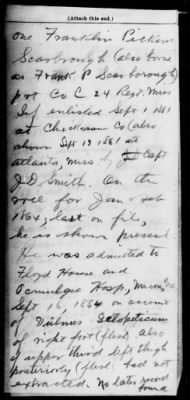 (Attach this end.)
one Franklin Pickens
Scarborough (also borne
as Frank P Scarborough)
pvt Co C 24 Regt. Miss
Inf enlisted Sept 1 1861
at Chickasaw Co (also
shown Sept 19 1861 at
Atlanta, Miss by Capt
J.D. Smith. On the
roll for Jan &
1864, last on file,
he is shown present
He was admitted to
Floyd House and
Ocmulgee Hosp, Macon, Ga
Sept 16, 1864 on account
of Vulnus Sclopeticum
of right foot (flesh) also
of upper third left thigh
posteriorly (flesh) ball not
extracted. No later record
found